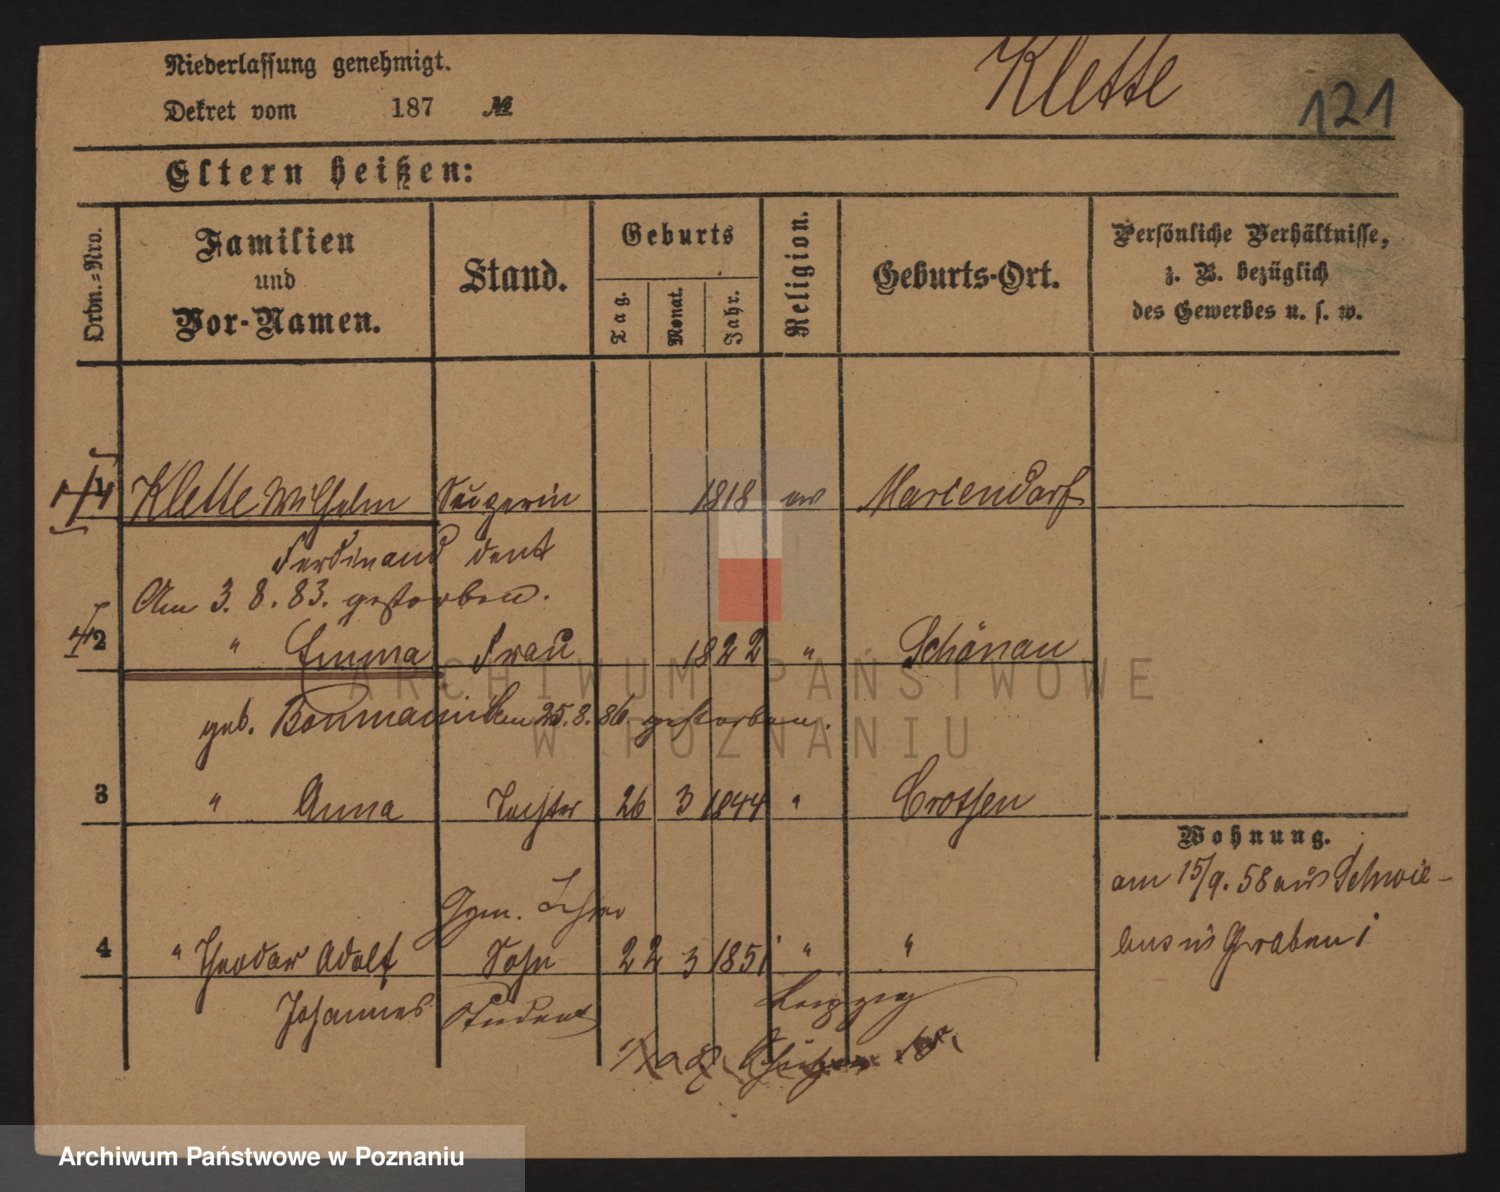 Niederlassung genehmigt.
Klette
121
Dekret vom 187 №
Eltern heißen:
Ordn.-Nro.
Familien und Vor-Namen.
Stand.
Geburts
Tag.
Monat.
Jahr.
Religion.
Geburts-Ort.
Persönliche Verhältnisse, z. B. bezüglich des Gewerbes u. s. w.
1 Klette Wilhelm 1818 ev Mariendorf
Ferdinand
Am 3. 8. 83. gestorben.
2 " Emma Frau 1822 " Schönau
geb. am 25. 8. 86 gestorben.
3 " Anna Tochter 26 3 1844 " Crossen
Wohnung.
am 15/9. 58 aus Schwie-
bus in Graben 1
Gym. Lehrer
4 " Theodor Adolf Sohn 22 3 1851 " "
Johannes Student Leipzig
ARCHIWUM PAŃSTWOWE
W POZNANIU
Archiwum Państwowe w Poznaniu